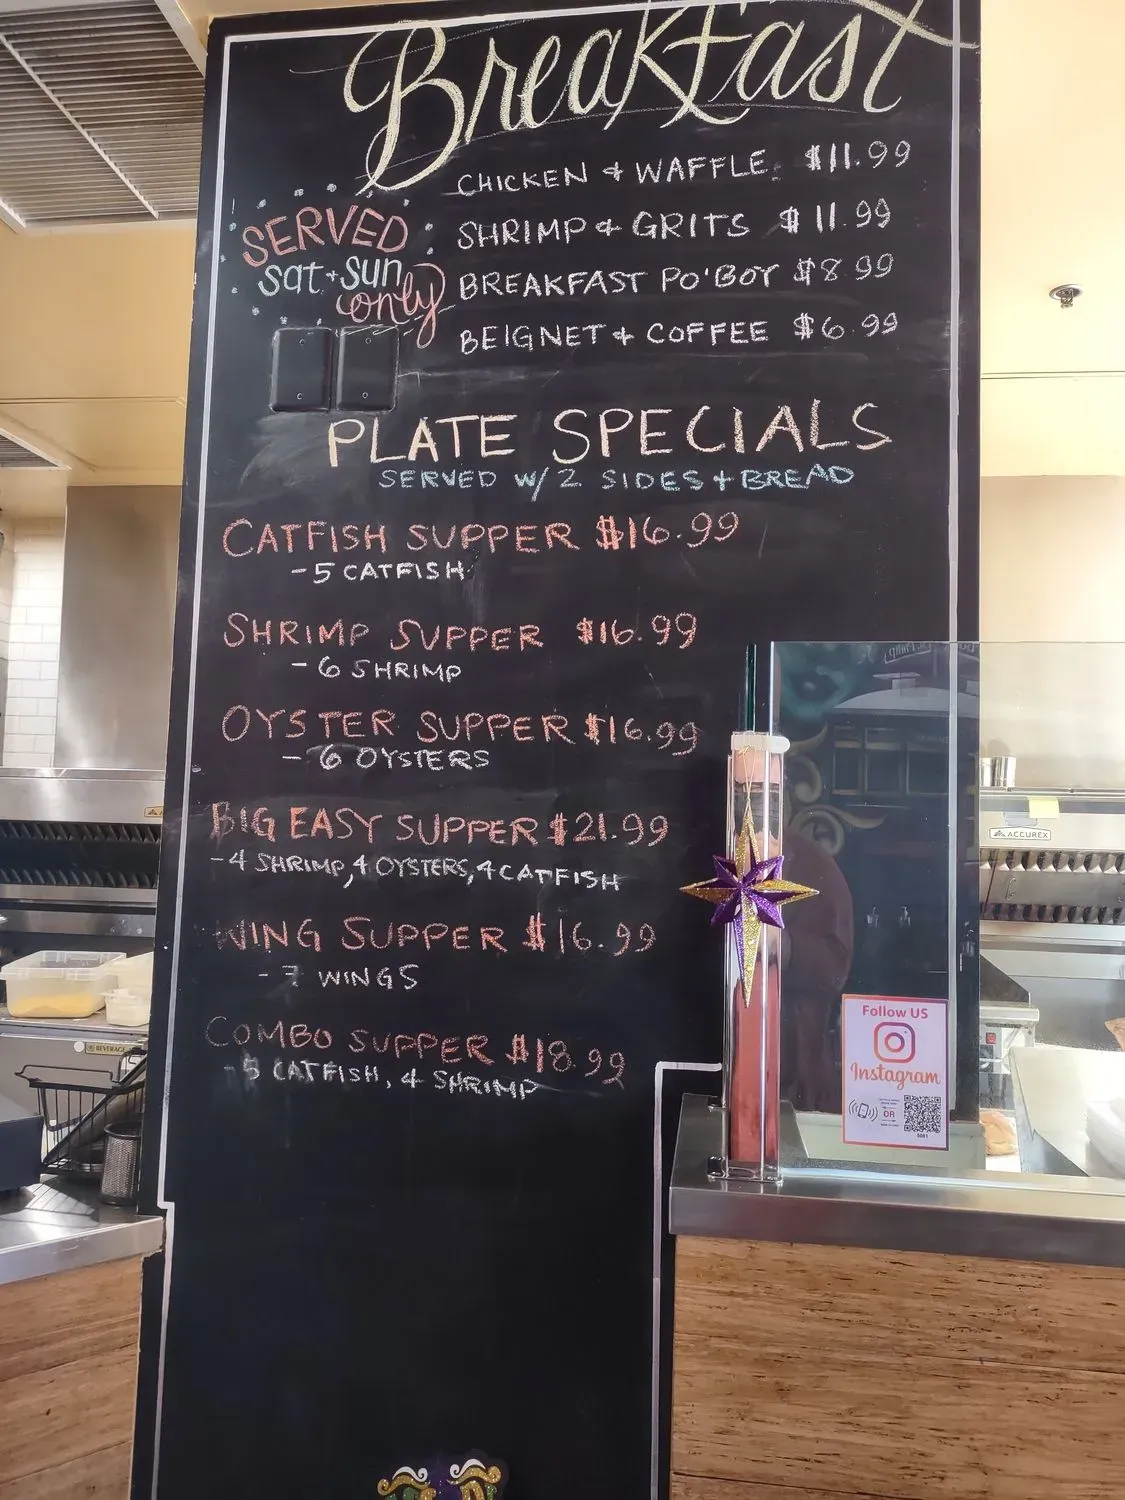 Breakfast
CHICKEN & WAFFLE $11.99
SHRIMP & GRITS $11.99
BREAKFAST PO'BOY $8.99
BEIGNET & COFFEE $6.99
SERVED
sat + sun
only
PLATE SPECIALS
SERVED W/ 2 SIDES + BREAD
CATFISH SUPPER $16.99
- 5 CATFISH
SHRIMP SUPPER $16.99
- 6 SHRIMP
OYSTER SUPPER $16.99
- 6 OYSTERS
BIG EASY SUPPER $21.99
- 4 SHRIMP, 4 OYSTERS, 4 CATFISH
WING SUPPER $16.99
- 7 WINGS
COMBO SUPPER $18.99
- 5 CATFISH, 4 SHRIMP
Follow US
Instagram
OR
ACCUREX
BEVERAGE